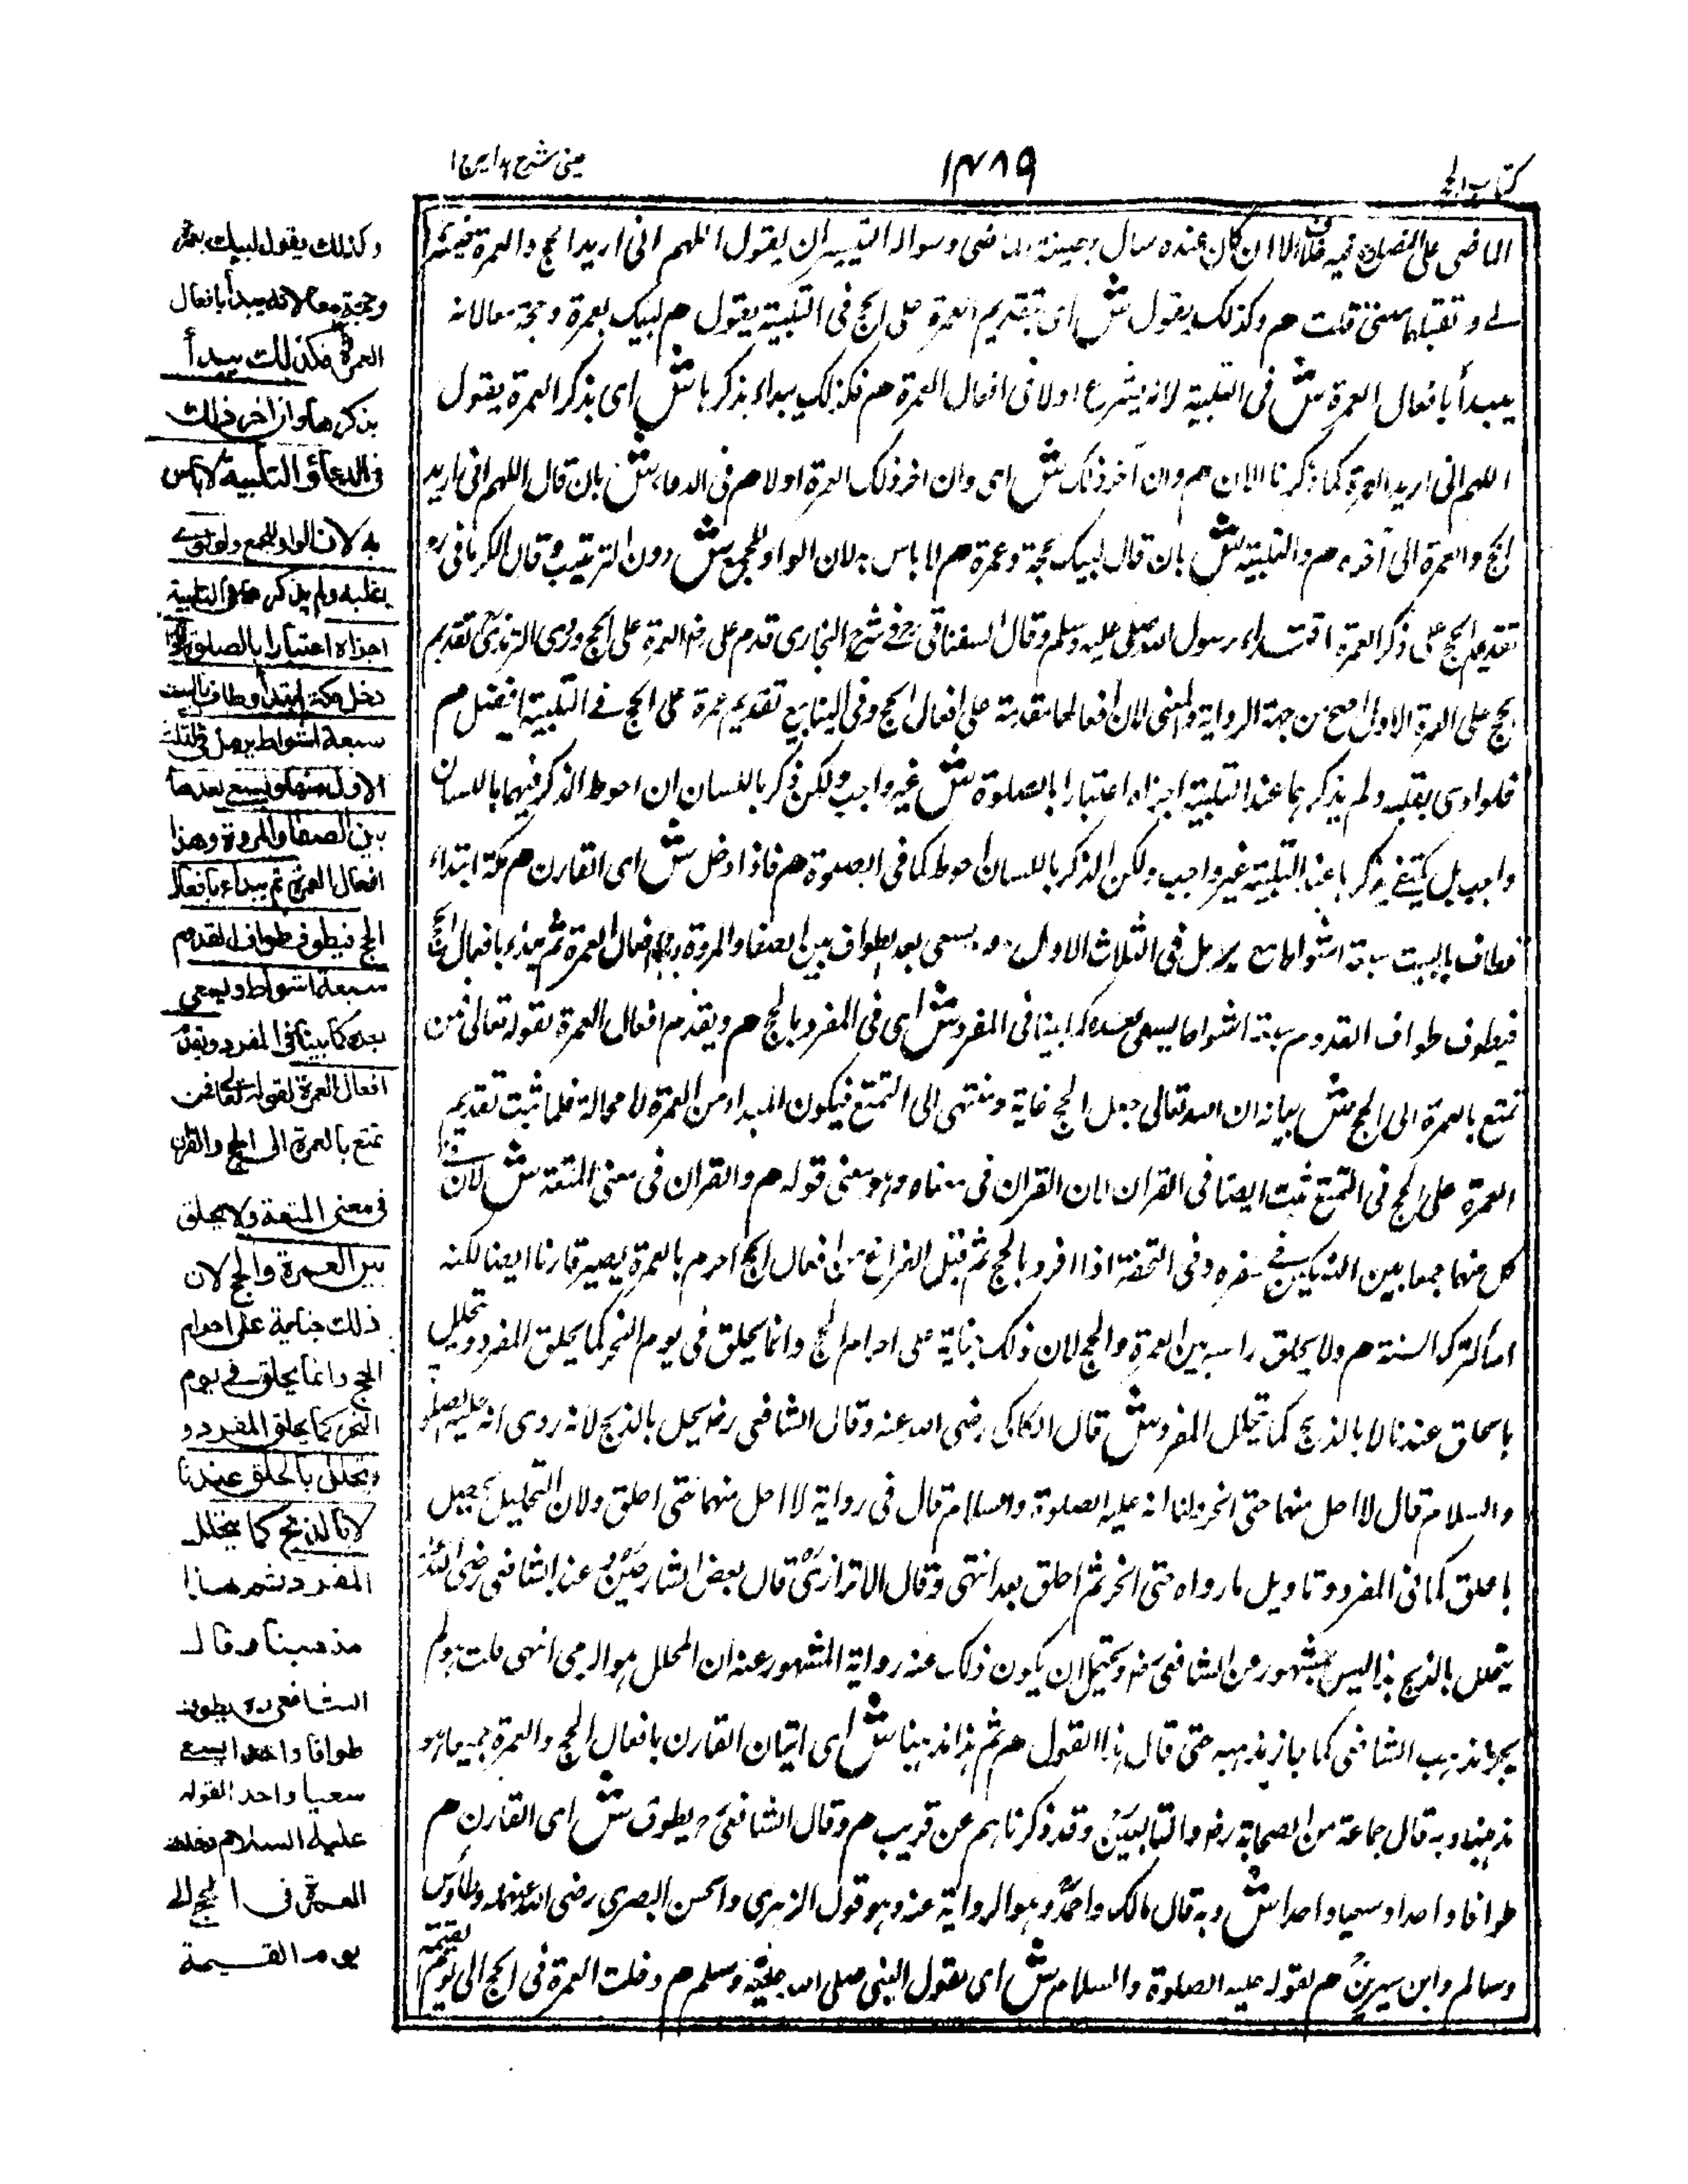 كتاب الحج
١٤٨٩
عينى شرح هدايه ج ١
الماضى على الفصل وفيه قلق الا ان كان عنده سال بصيغة الماضى وسوال التيسير ان يقول اللهم انى اريد الحج والعمرة فيسرهما
لے وتقبلهما منى قلت هم وكذلك يقول ش اى بتقديم العمرة على الحج فى التلبية يقول هم لبيك بعمرة وحجة معا لانه
يبدأ بافعال العمرة ش فى التلبية لانه يشرع اولا فى افعال العمرة هم فكذلك يبداء بذكرها ش اى بذكر العمرة يقول
اللهم انى اريد العمرة كما ذكرنا الان هم وان آخر ذلك ش اى وان اخر ذلك العمرة اولا هم فى الدعاء ش بان قال اللهم انى اريد
الحج والعمرة الى آخره هم والتلبية ش بان قال لبيك بحجة وعمرة هم لا باس به لان الواو للجمع ش دون الترتيب وقال الكرمانى رو
تقديم الحج على ذكر العمرة اقتداء برسول الله صلى عليه وسلم وقال السفناقى فے شرح البخارى قدم على رض العمرة على الحج وروى الترمذى تقديم
الحج على العمرة الاولى اصح من جهة الرواية والمعنى لان افعالها متقدمة على افعال الحج وفى الينابيع تقديم عمرة على الحج فے التلبية افضل هم
فلو نوى بقلبه ولم يذكرهما عند التلبية اجزاه اعتبارا بالصلوة ش غير واجب ولكن ذكر باللسان ان احوط الذكر فيهما باللسان
واجب بل يكتفے بذكرها عند التلبية غير واجب ولكن الذكر باللسان احوط كما فى الصلوة هم فاذا دخل ش اى القارن هم مكة ابتداء
فطاف بالبيت سبعة اشواط يرمل فى الثلاث الاول ويسعى بعد الطواف بين الصفا والمروة وهذا افعال العمرة ثم يبدء بافعال الحج
فيطوف طواف القدوم سبعة اشواط يسعى بعده كما بينا فى المفرد ش اى فى المفرد بالحج هم ويقدم افعال العمرة لقوله تعالى فمن
تمتع بالعمرة الى الحج ش بيانه ان الله تعالى جعل الحج غاية ومنتهى الى التمتع فيكون المبداء من العمرة لا محالة فلما ثبت تقديم
العمرة على الحج فى التمتع ثبت ايضا فى القران لان القران فى معناه وهو معنى قوله هم والقران فى معنى المتعة ش لان فى
كل منهما جمعا بين النسكين فے سفره وفى التحفة اذا افرد بالحج ثم قبل الفراغ من افعال الحج احرم بالعمرة يصير قارنا ايضا لكنه
اساء لترك السنة هم ولا يحلق راسه بين العمرة والحج لان ذلك جناية على احرام الحج وانما يحلق فى يوم النحر كما يحلق المفرد ويتحلل
بالحلق عندنا لا بالذبح كما يتحلل المفرد ش قال الكاكى رضى الله عنه وقال الشافعى رض يحل بالذبح لانه روى انه عليه الصلوة
والسلام قال لا احل منهما حتى انحر ولنا انه عليه الصلوة والسلام قال فى رواية لا احل منهما حتى احلق ولان التحليل يحصل
بالحلق كما فى المفرد وتاويل ما رواه حتى انحر ثم احلق بعد انتهى وقال الاترازى قال بعض الشارحين عند الشافعى رضى الله عنه
يتحلل بالذبح هذا ليس بمشهور عن الشافعى رض ويحتمل ان يكون ذلك عنه رواية المشهور عنه ان المحلل هو الرمى انتهى قلت ولم
يحرر مذهب الشافعى كما حاز مذهبه حتى قال هذا القول هم ثم هذا مذهبنا ش اى اتيان القارن بافعال الحج والعمرة جميعا هو
مذهبنا وبه قال جماعة من الصحابة رض والتابعين وقد ذكرناهم عن قريب هم وقال الشافعى رح يطوف ش اى القارن هم
طوافا واحدا وسعيا واحدا ش وبه قال مالك واحمد وهو الرواية عنه وهو قول الزهرى والحسن البصرى رضى الله عنهما وطاؤس
وسالم وابن سيرين هم لقوله عليه الصلوة والسلام ش اى لقول النبى صلى الله عليه وسلم هم دخلت العمرة فى الحج الى يوم القيمة
وكذلك يقول لبيك بعمرة
وحجة معا لانه يبدأ بافعال
العمرة فكذلك يبدأ
بذكرها وان اخر ذلك
فى الدعاء والتلبية لا باس
به لان الواو للجمع ولو نوى
بقلبه ولم يذكرهما فى التلبية
اجزاه اعتبارا بالصلوة فاذا
دخل مكة ابتدأ وطاف بالبيت
سبعة اشواط يرمل فى الثلث
الاول منها ويسعى بعدها
بين الصفا والمروة وهذا
افعال العمرة ثم يبداء بافعال
الحج فيطوف طواف القدوم
سبعة اشواط ويسعى
بعده كما بينا فى المفرد ويقدم
افعال العمرة لقوله تعالى فمن
تمتع بالعمرة الى الحج والقران
فى معنى المتعة ولا يحلق
بين العمرة والحج لان
ذلك جناية على احرام
الحج وانما يحلق فے يوم
النحر كما يحلق المفرد و
يتحلل بالحلق عندنا
لا بالذبح كما يتحلل
المفرد ثم هذا
مذهبنا وقال
الشافعى ره يطوف
طوافا واحدا يسعى
سعيا واحدا لقوله
عليه السلام دخلت
العمرة فى الحج الى
يوم القيمة